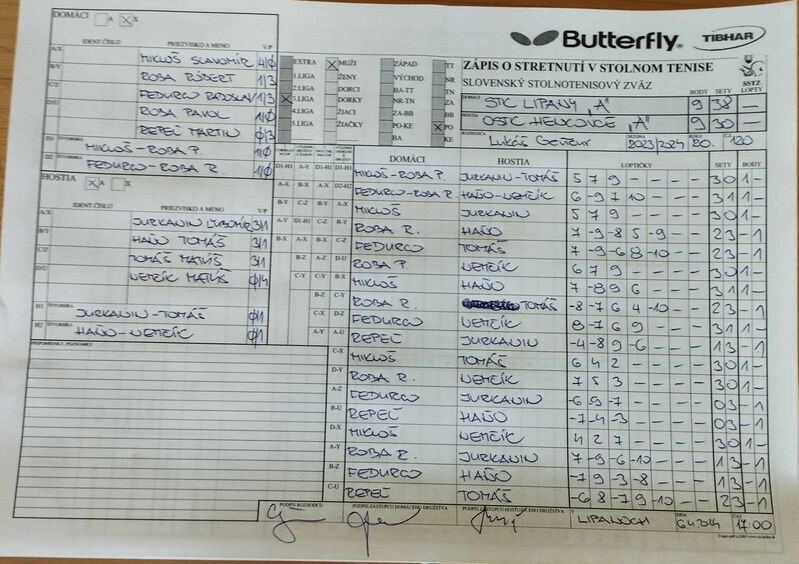 DOMÁCI A X X
IDENT.ČÍSLO PRIEZVISKO A MENO V/P
A/X MIKLOŠ SLAVOMÍR 4/0
B/Y ROBA RÓBERT 1/3
C/Z FEDURCO RADOSLAV 1/3
D/U ROBA PAVOL 1/0
REPEL MARTIN 0/3
D1 ŠTVORHRA MIKLOŠ-ROBA P. 1/0
D2 FEDURCO-ROBA R. 1/0
HOSTIA X A X
IDENT.ČÍSLO PRIEZVISKO A MENO V/P
A/X JURKANIN ĽUBOMÍR 3/1
B/Y HAŇO TOMÁŠ 3/1
C/Z TOMÁŠ MATÚŠ 3/1
D/U NEMČÍK MATÚŠ 0/4
H1 ŠTVORHRA JURKANIN-TOMÁŠ 0/1
H2 ŠTVORHRA HAŇO-NEMČÍK 0/1
PRIPOMIENKY, POZNÁMKY
EXTRA X MUŽI ZÁPAD TT
1.LIGA ŽENY VÝCHOD NR
2.LIGA DORCI BA-TT TN
X 3.LIGA DORKY NR-TN ZA
4.LIGA ŽIACI ZA-BB BB
5.LIGA ŽIAČKY PO-KE X PO
BA KE
Butterfly TIBHAR
ZÁPIS O STRETNUTÍ V STOLNOM TENISE
SLOVENSKÝ STOLNOTENISOVÝ ZVÄZ SSTZ
BODY SETY LOPTY
DOMÁCI STK LIPANY "A" 9 38 —
HOSTIA OSTK HENCOVCE "A" 9 30 —
ROZHODCA Lukáš SEZÓNA 2023/2024 KOLO 20. Č. 120
DOMÁCI HOSTIA LOPTIČKY SETY BODY
D1-H1 A-Y D1-H1 D1-H1 MIKLOŠ-ROBA P. JURKANIN-TOMÁŠ 5 7 9 - - - - 3 0 1 -
A-X B-X D2-H2 FEDURCO-ROBA R. HAŇO-NEMČÍK 6 -9 7 10 - - - 3 1 1 -
B-Y C-Z A-X MIKLOŠ JURKANIN 5 7 9 - - - - 3 0 1 -
A-Y D1-H1 C-Z B-Y ROBA R. HAŇO 7 -9 -8 5 -9 - - 2 3 - 1
B-X A-X B-X C-Z FEDURCO TOMÁŠ 7 -9 -6 8 -10 - - 2 3 - 1
B-Z A-Z D-U ROBA P. NEMČÍK 6 7 9 - - - - 3 0 1 -
C-Y B-Y C-Y B-X MIKLOŠ HAŇO 7 -8 9 6 - - - 3 1 1 -
B-Z C-Y ROBA R. TOMÁŠ -8 -7 6 4 -10 - - 2 3 - 1
C-X D-Z FEDURCO NEMČÍK 8 -7 6 9 - - - 3 1 1 -
A-Y A-U REPEL JURKANIN -4 -8 9 -6 - - - 1 3 - 1
C-X MIKLOŠ TOMÁŠ 6 4 2 - - - - 3 0 1 -
D-Y ROBA R. NEMČÍK 7 5 3 - - - - 3 0 1 -
A-Z FEDURCO JURKANIN -6 -9 -7 - - - - 0 3 - 1
B-U REPEL HAŇO -7 -4 -3 - - - - 0 3 - 1
D-X MIKLOŠ NEMČÍK 4 2 7 - - - - 3 0 1 -
A-Y ROBA R. JURKANIN 7 -9 -6 -10 - - - 1 3 - 1
B-Z FEDURCO HAŇO -7 9 -3 -8 - - - 1 3 - 1
C-U REPEL TOMÁŠ -6 8 -7 9 -10 - - 2 3 - 1
PODPIS ROZHODCU PODPIS ZÁSTUPCU DOMÁCEHO DRUŽSTVA PODPIS ZÁSTUPCU HOSŤUJÚCEHO DRUŽSTVA V LIPANOCH DŇA 6.4.2024 ČAS 17:00